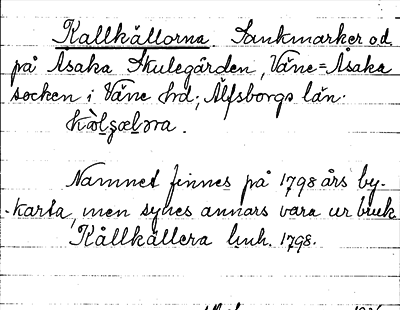 Kallkällorna. Sankmarker o.d.
på Åsaka Skulegården, Väne=Åsaka
socken i Väne hrd; Älfsborgs län.
Namnet finnes på 1798 års by-
-karta, men synes annars vara ur bruk.
Kållkällera lmh. 1798.